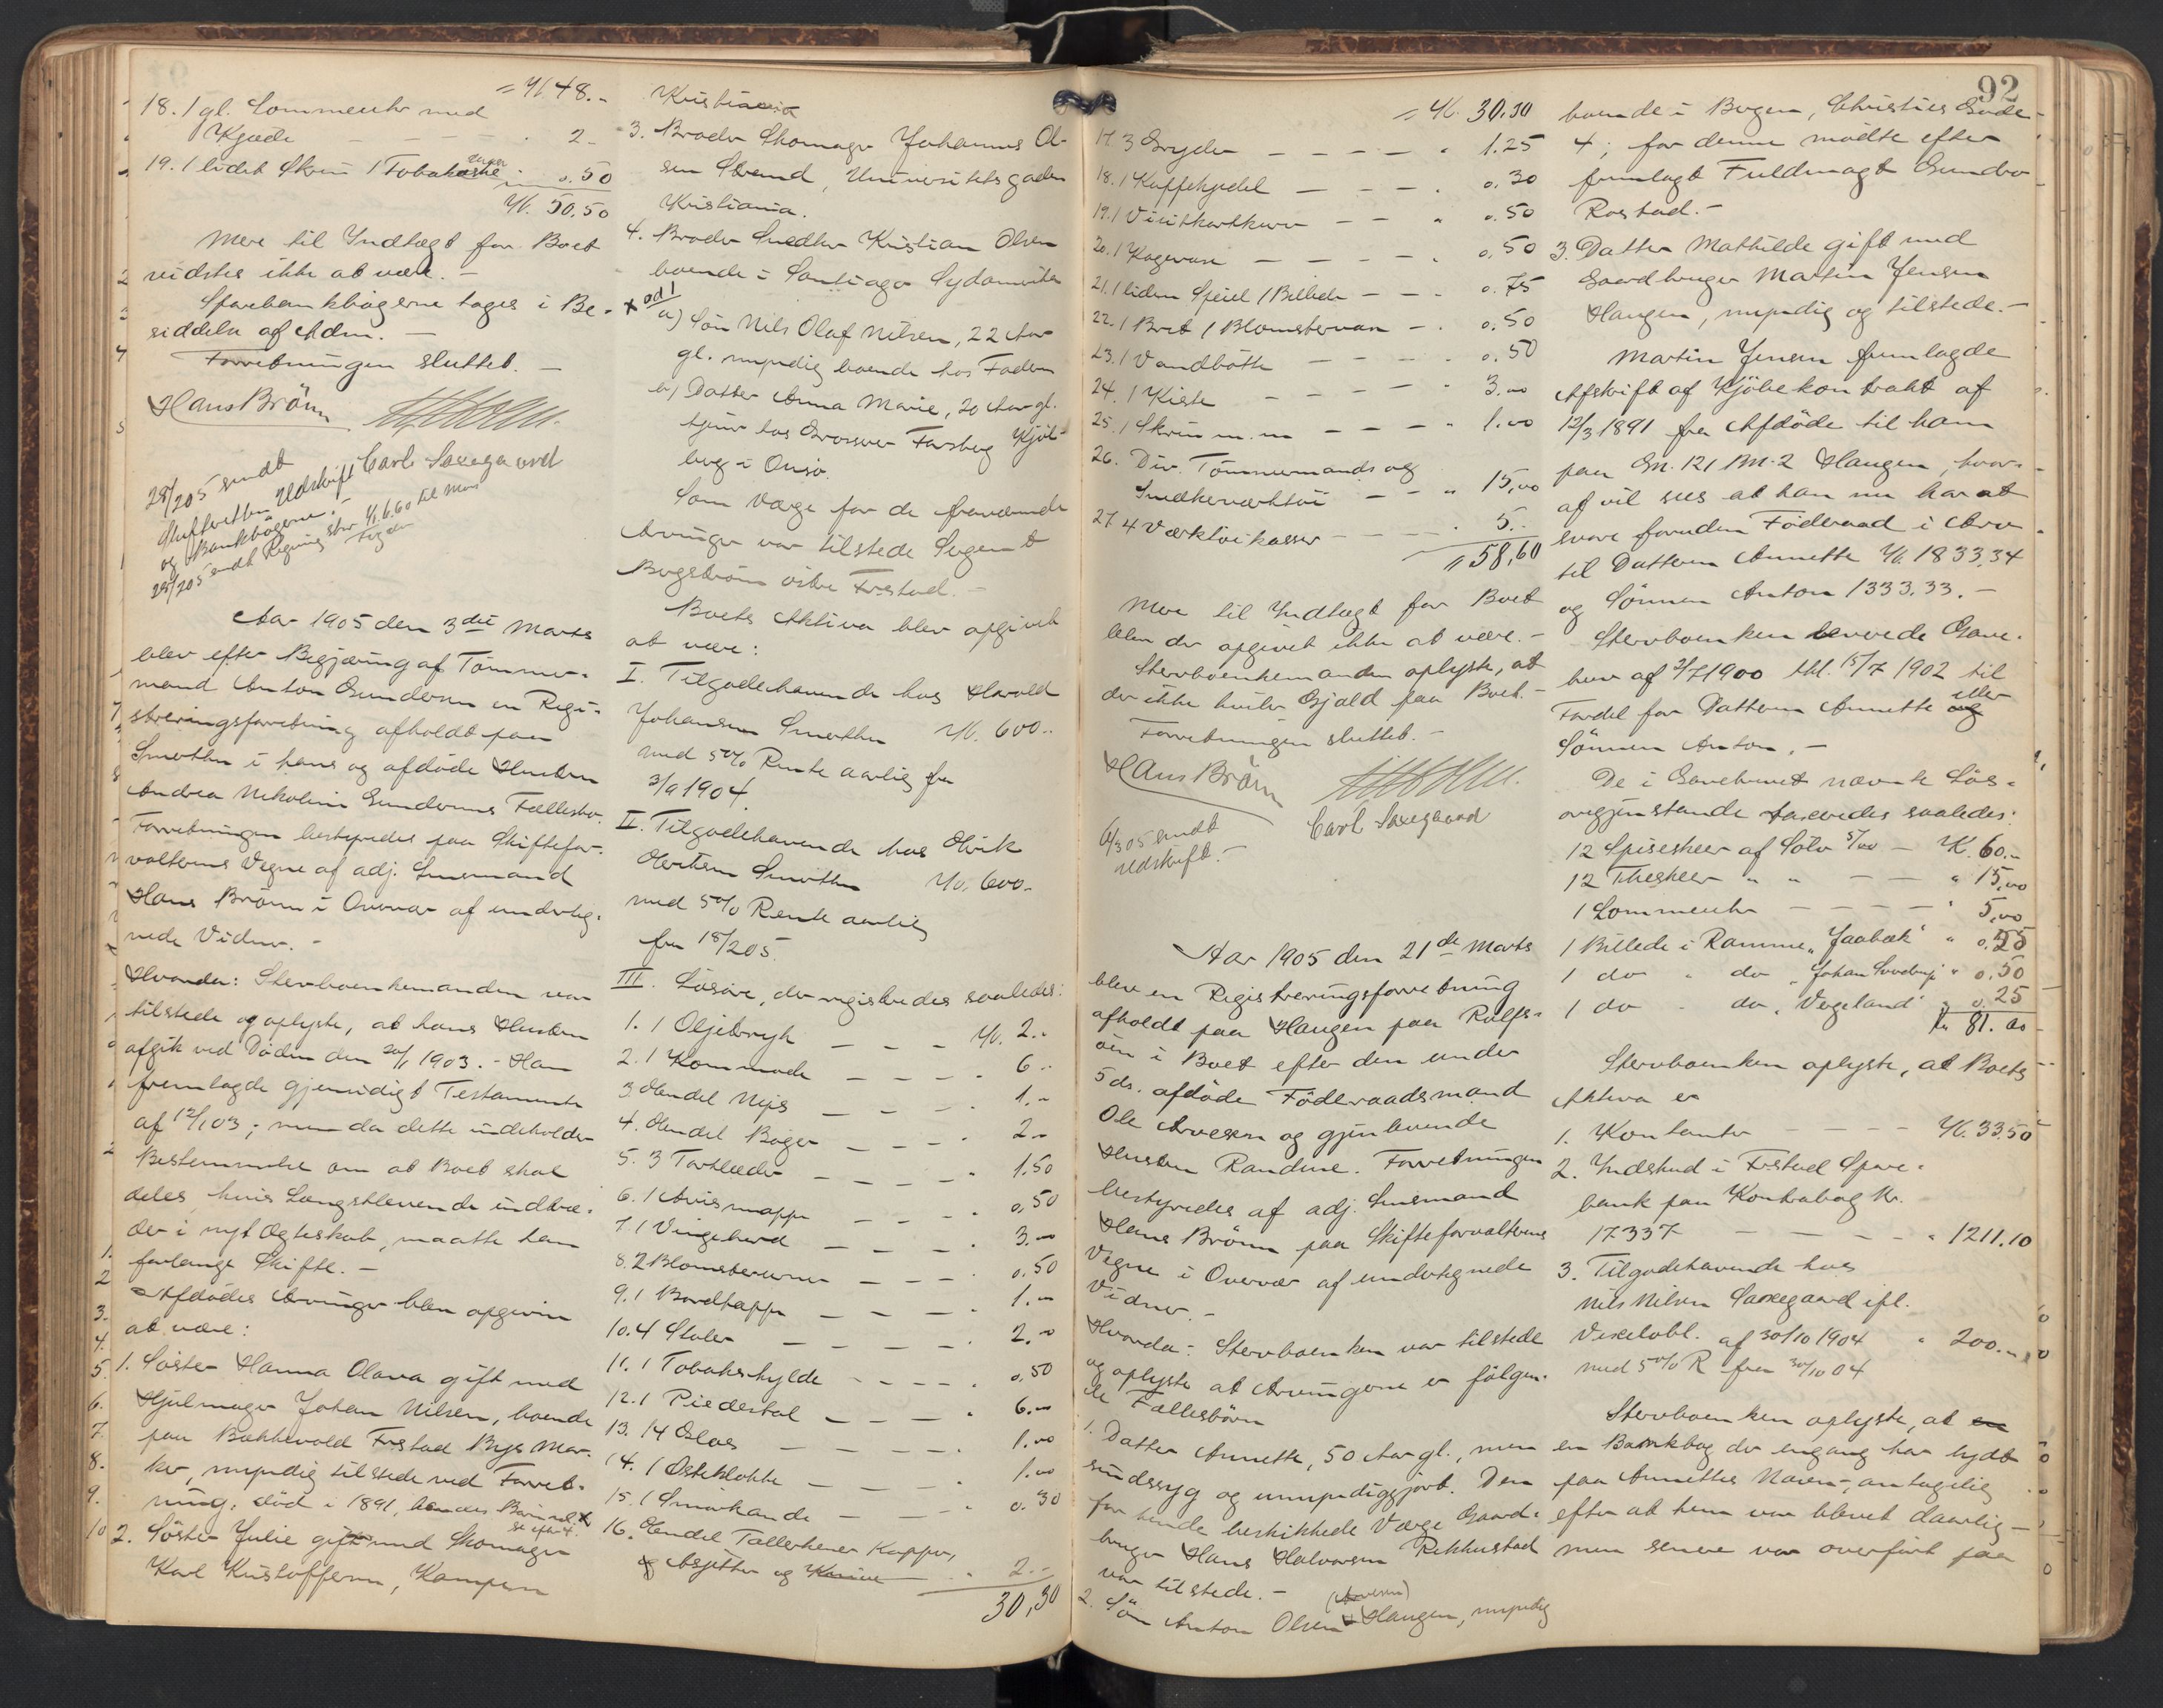 = K. 48.-
18. 1 gl. Lommeuhr med
Kjæde - - - . 2.-
19. 1 lidet Skrin 1 Tobakæske 0.50
K. 50.50
Mere til Indtægt for Boet
vidstes ikke at være. -
Sparebankbøgerne tages i Be-
siddelse af Adm. -
Forretningen sluttet. -
Hans Brönn
Carl Saxegaard
28/2 05 sendt
Skifteretten Udskrift
og Bankbøgerne. -
28/2 05 sendt Regning stor K. 6.60 til
Aar 1905 den 3die Marts
blev efter Begjæring af Tömmer-
mand Anton Gundersen en Regi-
streringsforretning afholdt paa
Smerthu i hans og afdöde Hustru
Andrea Nikoline Gundersens Fællesbo.
Forretningen bestyredes paa Skiftefor-
valterens Vegne af adj. Lensmand
Hans Brönn i Overvær af underteg-
nede Vidner. -
Hvorda: Stervboenkemanden var
tilstede og oplyste, at hans Hustru
afgik ved Döden den 20/1 1903. - Han
fremlagde gjensidigt Testamente
af 12/1 03; men da dette indeholder
Bestemmelse om at Boet skal
deles, hvis Længstlevende indtræ-
der i nyt Ægteskab, maatte han
forlange Skifte. -
Afdödes Arvinger blev opgivne
at være:
1. Söster Hanna Olava gift med
Hjulmager Johan Nilsen, boende
paa Bakkevold Frstad Bys Mar-
ker, myndig tilstede ved Forret-
ning, död i 1891, hendes Börn x
se efter 4.
2. Söster Julie gift med Skomager
Karl Kristoffersen, Kampen
Kristiania
3. Broder Skomager Johannes Ol-
sen Strand, Universitetsgaden
Kristiania.
4. Broder Snedker Kristian Olsen
boende i Santiago Sydamerika
x ad 1
a) Sön Nils Olaf Nilsen, 22 Aar
gl. myndig boende hos Faderen
b) Datter Anna Marie, 20 Aar gl.
tjener hos Grosserer Forsberg Kjöl-
berg i Onsö.
Som Værge for de fraværende
Arvinger var tilstede Sergent
Bergström östre Frstad. -
Boets Aktiva blev opgivet
at være:
I. Tilgodehavende hos Harald
Johansen Smerthu K. 600.-
med 5% Rente aarlig fra
3/9 1904.
II. Tilgodehavende hos
Smerthu K. 600.-
med 5% Rente aarlig
fra 18/2 05.
III. Lösöre, der registredes saaledes:
1. 1 Oljetryk - - - K. 2.-
2. 1 Kommode - - - . 6.-
3. Hendel Nips - - - . 1.-
4. Hendel Böger - - - . 2.-
5. 3 Tavleder - - - . 1.50
6. 1 Avismappe - - - . 0.50
7. 1 Vingebord - - - . 3.-
8. 2 Blomsterurner - - - . 0.50
9. 1 Bordtæppe - - - . 1.-
10. 4 Stoler - - - . 2.-
11. 1 Tobakshylde - - - . 0.50
12. 1 Piedestal - - - . 6.-
13. 14 Glas - - - . 1.00
14. 1 Osteklokke - - - . 1.00
15. 1 Smörkande - - . 0.30
16. Hendel Tallerkener Kopper,
og Asjetter og . 2.-
30,30
92
= K. 30.30
17. 3 Gryder - - - - " 1.25
18. 1 Kaffekjedel - - - . 0.30
19. 1 Visitkortkurv - - " 0.50
20. 1 Kagevase - - - - . 0.50
21. 1 liden Speiel 1 Billede - - . 0.75
22. 1 Bret 1 Blomstervase - . 0.50
23. 1 Vandbötte - - - . 0.50
24. 1 Kiste - - - - " 3.00
25. 1 Skrin m.m - - - " 1.00
26. Div. Tömmermands og
Snedkerværktöi - - " 15,00
27. 4 Værktöikasser - - - . 5.-
K 58,60
Mere til Indtægt for Boet
blev der opgivet ikke at være. -
Stervboenkemanden oplyste, at
der ikke hviler Gjæld paa Boet. -
Forretningen sluttet. -
Hans Brönn
Carl Saxegaard
6/3 05 sendt
Udskrift. -
Aar 1905 den 21de Marts
blev en Registreringsforretning
afholdt paa Haugen paa Rolfs-
öen i Boet efter den under
5 ds. afdöde Föderaadsmand
Ole Arvesen og gjenlevende
Hustru Randine. Forretningen
bestyredes af adj. Lensmand
Hans Brönn paa Skifteforvalterens
Vegne i Overvær af undertegnede
Vidner. -
Hvorda: Stervboenken var tilstede
og oplyste at Arvingerne er fölgen-
de Fællesbörn
1. Datter Annette, 50 Aar gl., men
sindssyg og umyndiggjort. Den
for hende beskikkede Værge Gaard-
bruger Hans Halvorsen Rekkustad
var tilstede. -
2. Sön Anton Olsen (Arvesen) Haugen, myndig
boende i Bergen, Christies Gade
4; for denne mödte efter
fremlagt Fuldmagt Gundro
Rostad. -
3. Datter Mathilde gift med
Gaardbruger Martin Jensen
Haugen, myndig og tilstede. -
Martin Jensen fremlagde
Afskrift af Kjöbekontrakt af
12/3 1891 fra Afdöde til ham
paa Gn. 121 Bn. 2 Haugen, hvor-
af vil sees at han nu har at
svare foruden Föderaad i Arv
til Datteren Annette K. 1833,34
og Sönnen Anton 1333.33. -
Stervboenken Gave-
brev af 3/7 1900 thl. 15/7 1902 til
Fordel for Datteren Annette og eller
Sönnen Anton. -
De i Gavebrevet nævnte Lös-
öregjenstande taxeredes saaledes:
12 Spiseskeer af Sölv 5/00 - K. 60.-
12 Theskeer " " - - " 15,00
1 Lommeuhr - - - - " 5,00
1 Billede i Ramme "Jaabæk" " 0.25
1 do " do "Johan Sverdrup" " 0.50
1 do " do "Vegeland" " 0.25
Kr 81.00
Stervboenken oplyste, at Boets
Aktiva er
1. Kontanter - - - - K. 33.50
2. Indskud i Frstad Spare-
bank paa Kontrabog Nr.
17337 - - - - " 1211.10
3. Tilgodehavende hos
Nils Nilsen Saxegaard ifl.
Vexelobl. af 30/10 1904 " 200.-
med 5% R fra 30/10 04
Stervboenken oplyste, at en
en Bankbog der engang har lydt
paa Annettes Navn, antagelig
efter at hun var blevet daarlig -
men senere var overfört paa